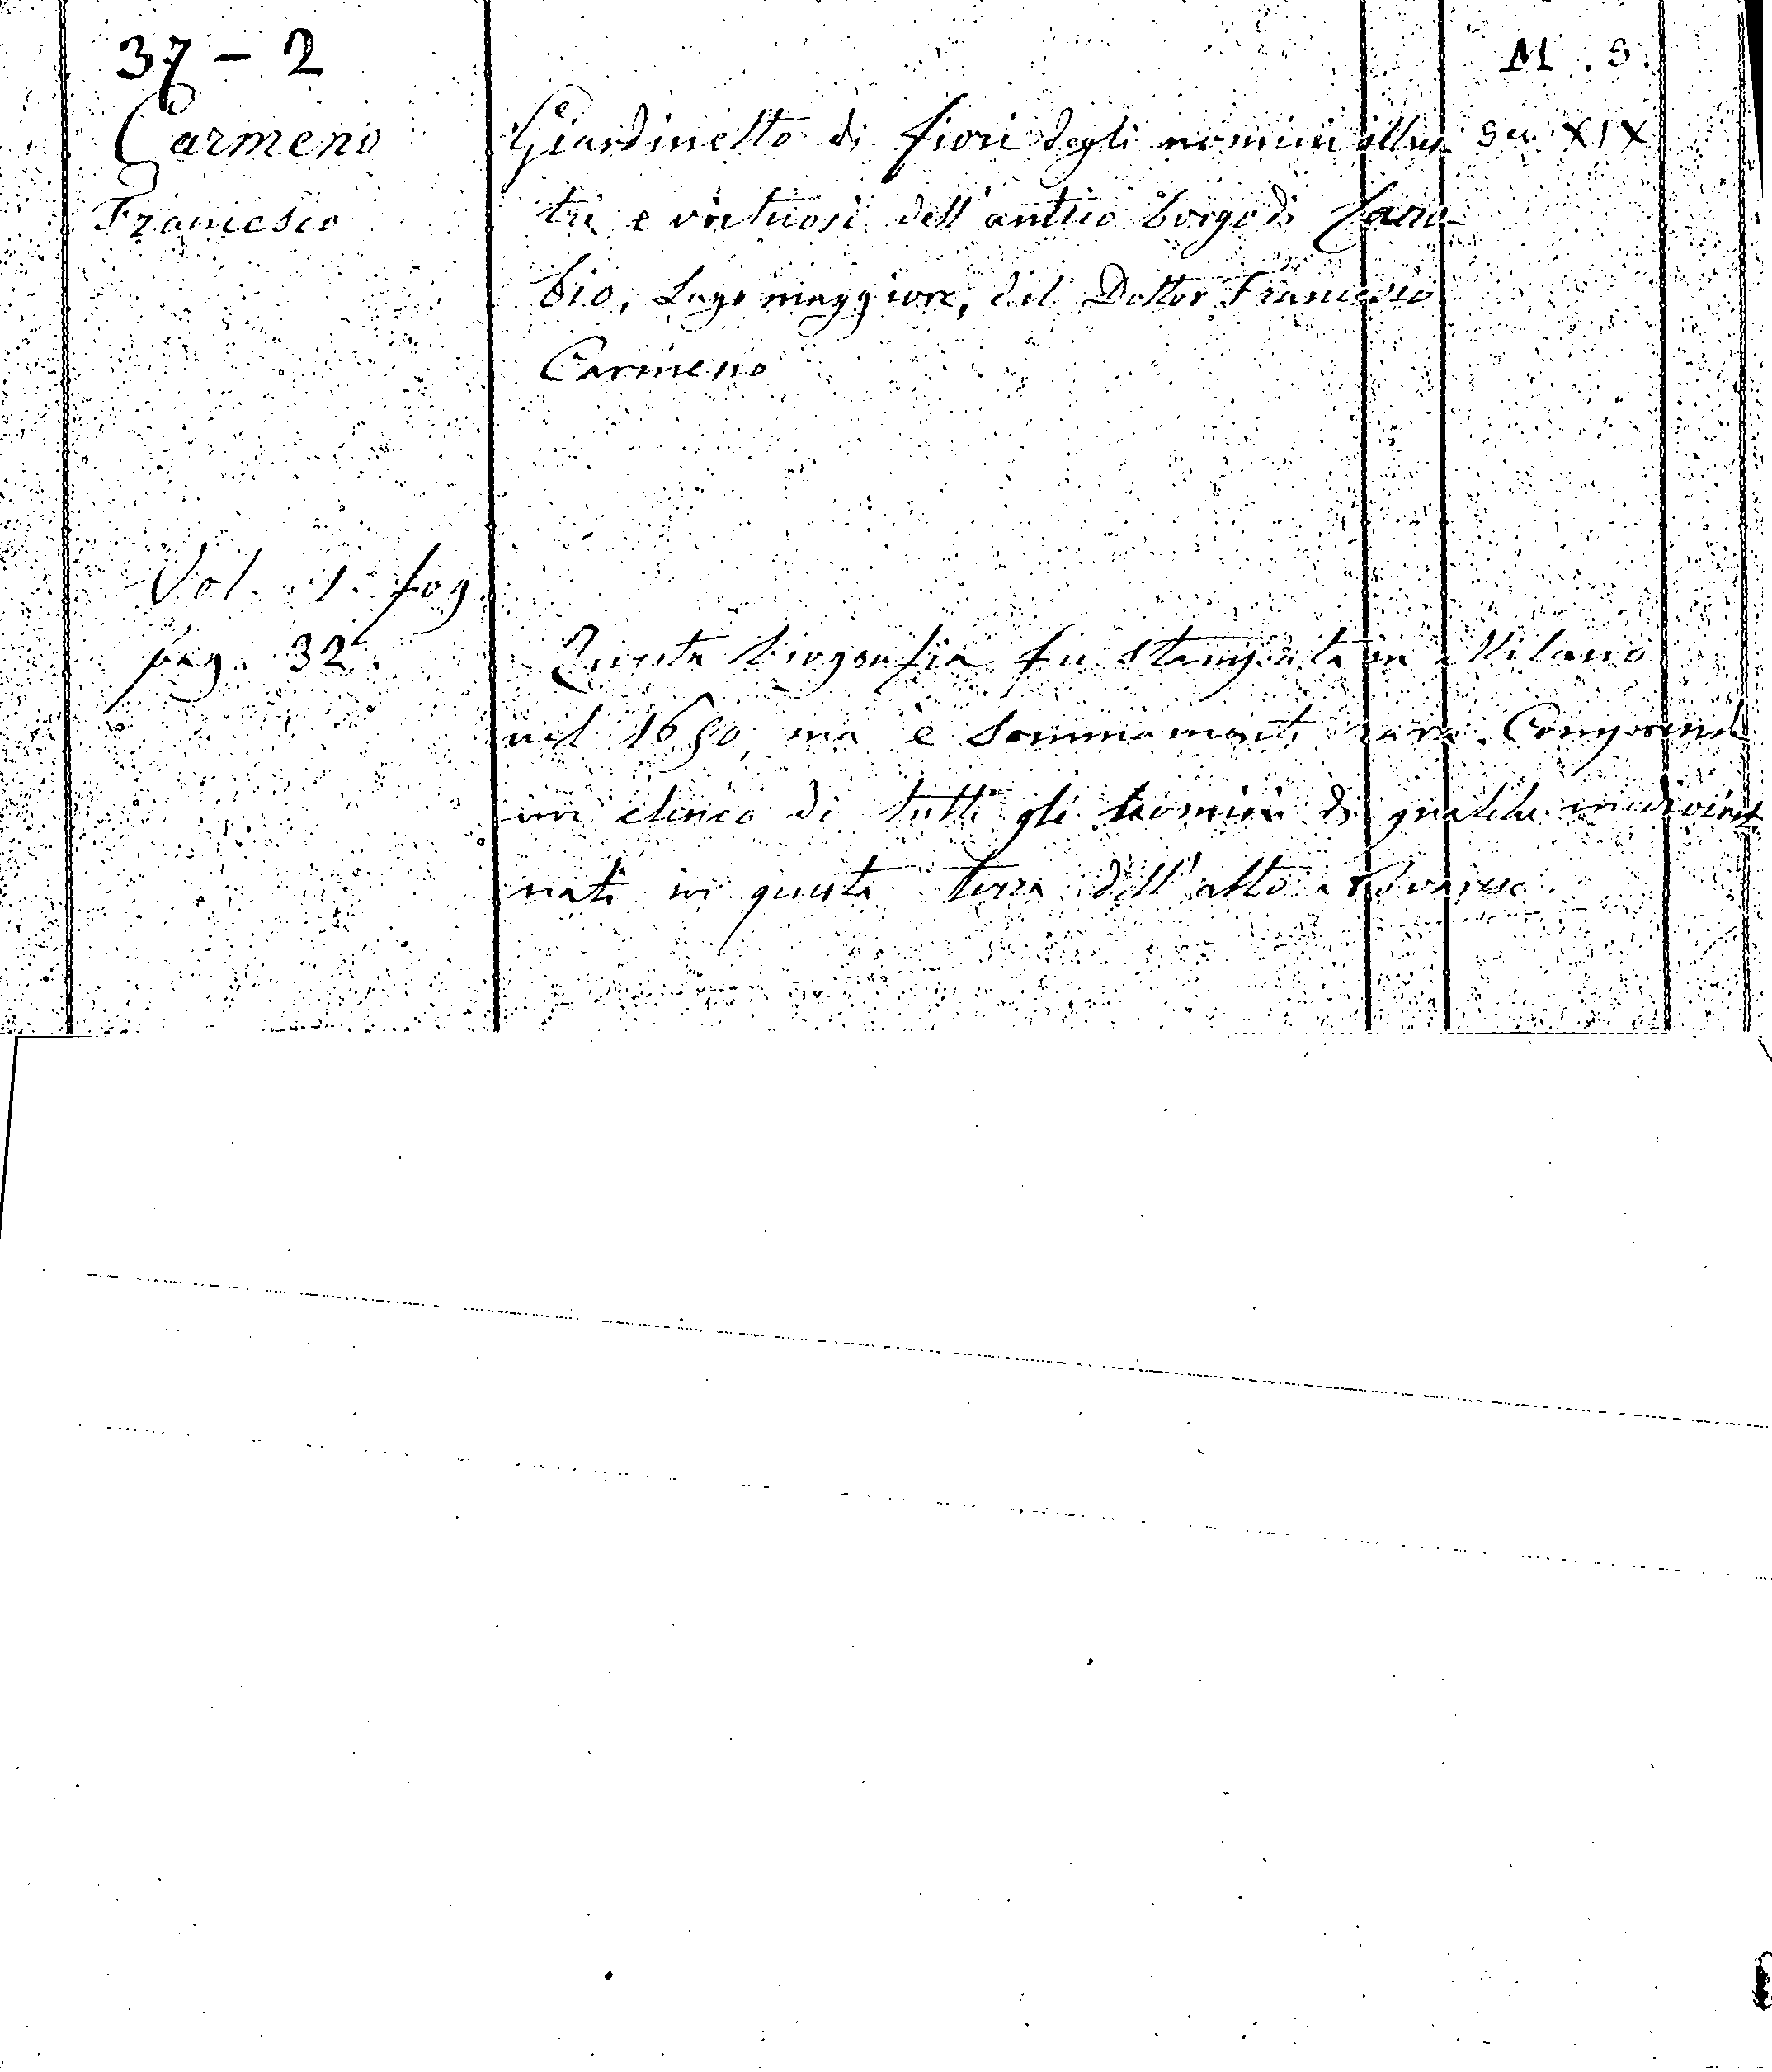 37 - 2
M. S.
Carmeno
Francesco
Giardinetto di fiori degli uomini illus- Sec. XIX
tri e virtuosi dell'antico borgo di Cano-
bio, Lago maggiore, del Dottor Francesco
Carmeno
Vol. 1. fog.
pag. 32.
Questa biografia fu stampata in Milano
nel 1690, ma è sommamente rara. Comprende
un elenco di tutti gli uomini di qualche
nati in questa terra dell'alto Novarese.